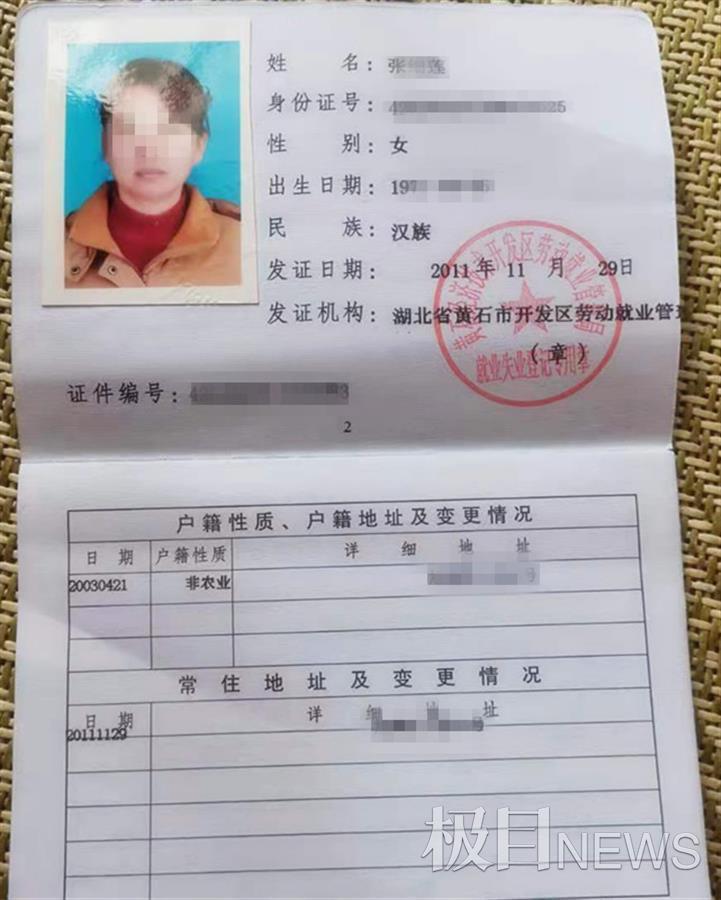 姓 名：张
身份证号：42 25
性 别：女
出生日期：197
民 族：汉族
发证日期：2011年11月29日
发证机构：湖北省黄石市开发区劳动就业管
（章）
开发区劳动就业管理局
就业失业登记专用章
证件编号：42 3
2
户籍性质、户籍地址及变更情况
日 期 户籍性质 详 细 地 址
20030421 非农业 号
常 住 地 址 及 变 更 情 况
日 期 详 细 地 址
20111129 号
极目NEWS